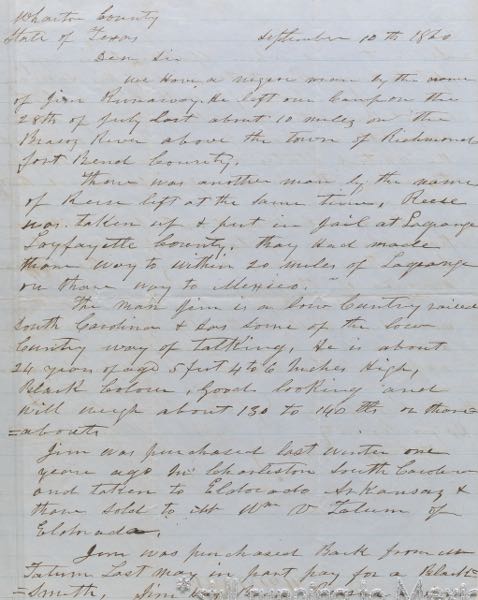 Wharton County
State of Texas September 10th 1860
Dear Sir
we have a negroe man by the name
of Jim Runaway. He left our Camp on the
28th of July Last about 10 miles on the
Brasos River above the town of Richmond
fort Bend County.
Thare was another man by the name
of Reese left at the same time, Reese
was taken up & put in jail at Lagrange
Loyfayette County. thay had made
thare way to within 20 miles of Lagrange
on thare way to Mexico.
The man Jim is a low Cuntry raised
South Carolina & has Some of the low
Cuntry way of talking, He is about
24 years of age 5 feet 4 to 6 Inches High,
Black Colour, Good looking and
will weigh about 130 to 140 lbs or thare=
=abouts
Jim was purchased last winter one
year ago in Charleston South Carolina
and taken to Eldorado Arkansas &
thare sold to Wm V Tatum of
Eldorado.
Jim was purchased Back from
Tatum Last May in part pay for a Black=
=Smith, Jim